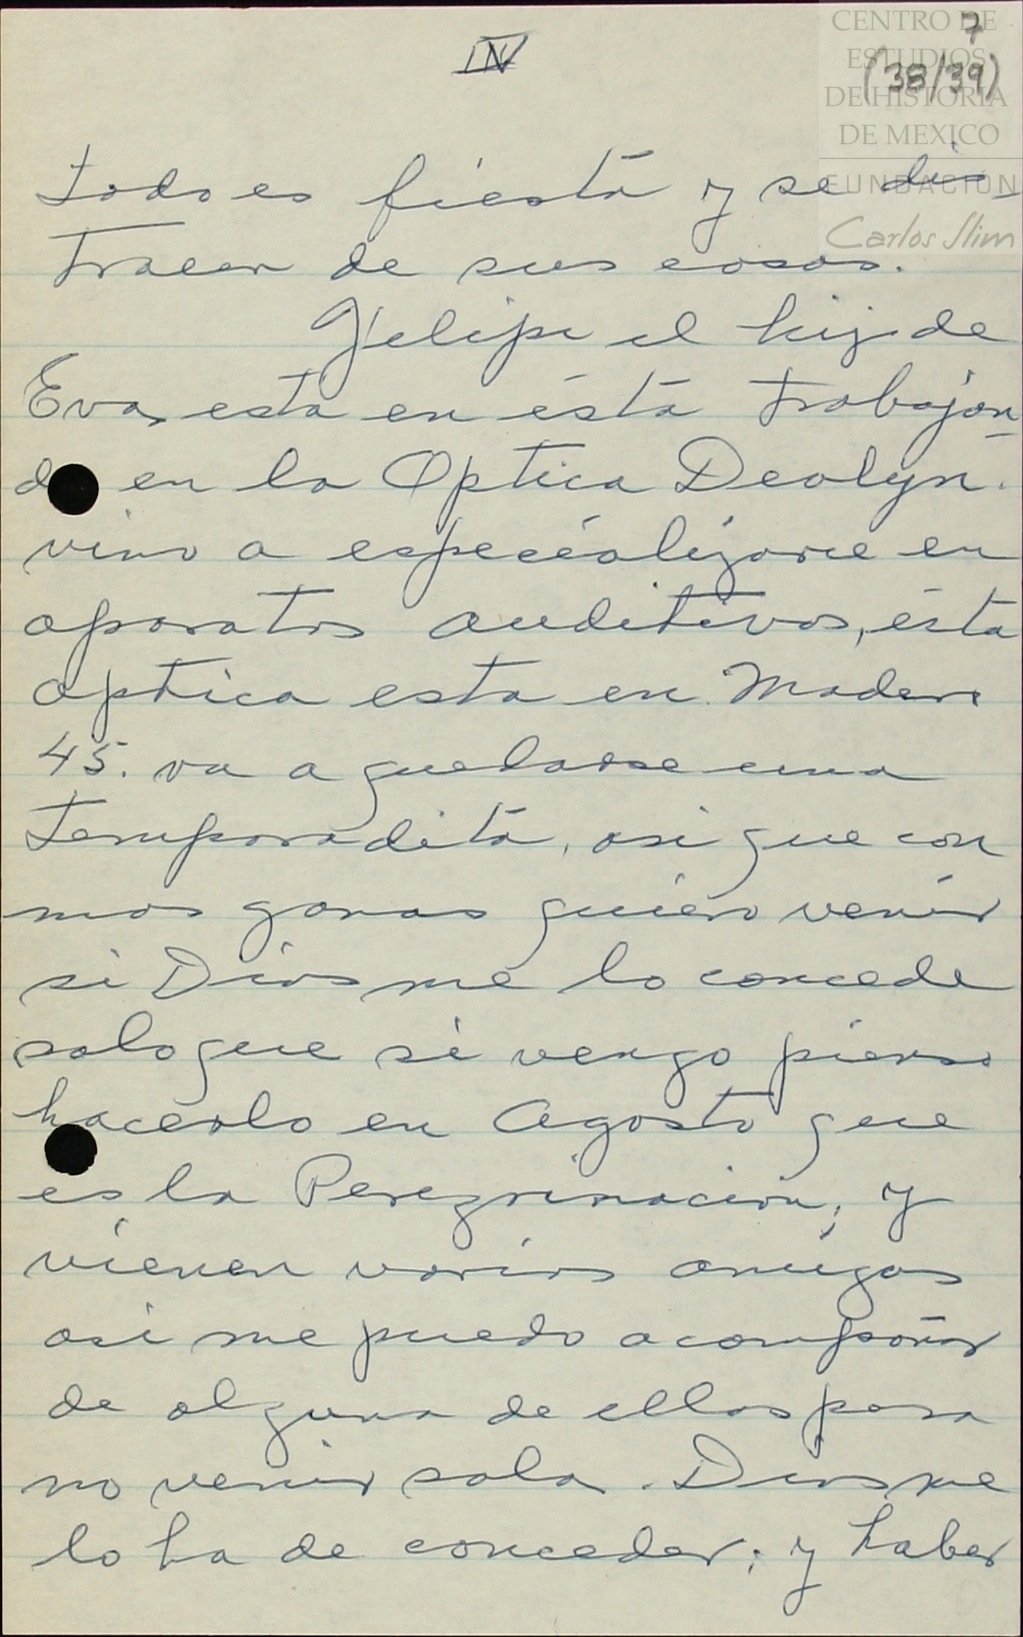 IV
7
(38/39)
CENTRO DE
ESTUDIOS
DE HISTORIA
DE MEXICO
FUNDACIÓN
Carlos Slim
todo es fiesta y se dis
traen de sus cosas.
Felipe el hijo de
Eva, esta en ésta trabajan
do en la Optica Devlyn.
vino a especializarse en
aparatos auditivos, ésta
optica esta en Madero
45. va a quedarse una
temporadita, asi que con
mas ganas quiero venir
si Dios me lo concede
solo que si vengo pienso
hacerlo en Agosto que
es la Peregrinacion, y
vienen varios amigos
asi me puedo acompañar
de alguna de ellas para
no venir sola. Dios me
lo ha de conceder; y haber